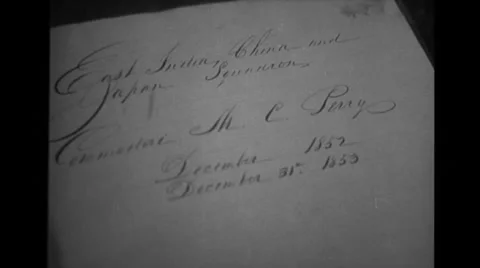 East India, China and
Japan Squadron,
Commodore M C Perry
December 1852
December 31st. 1853